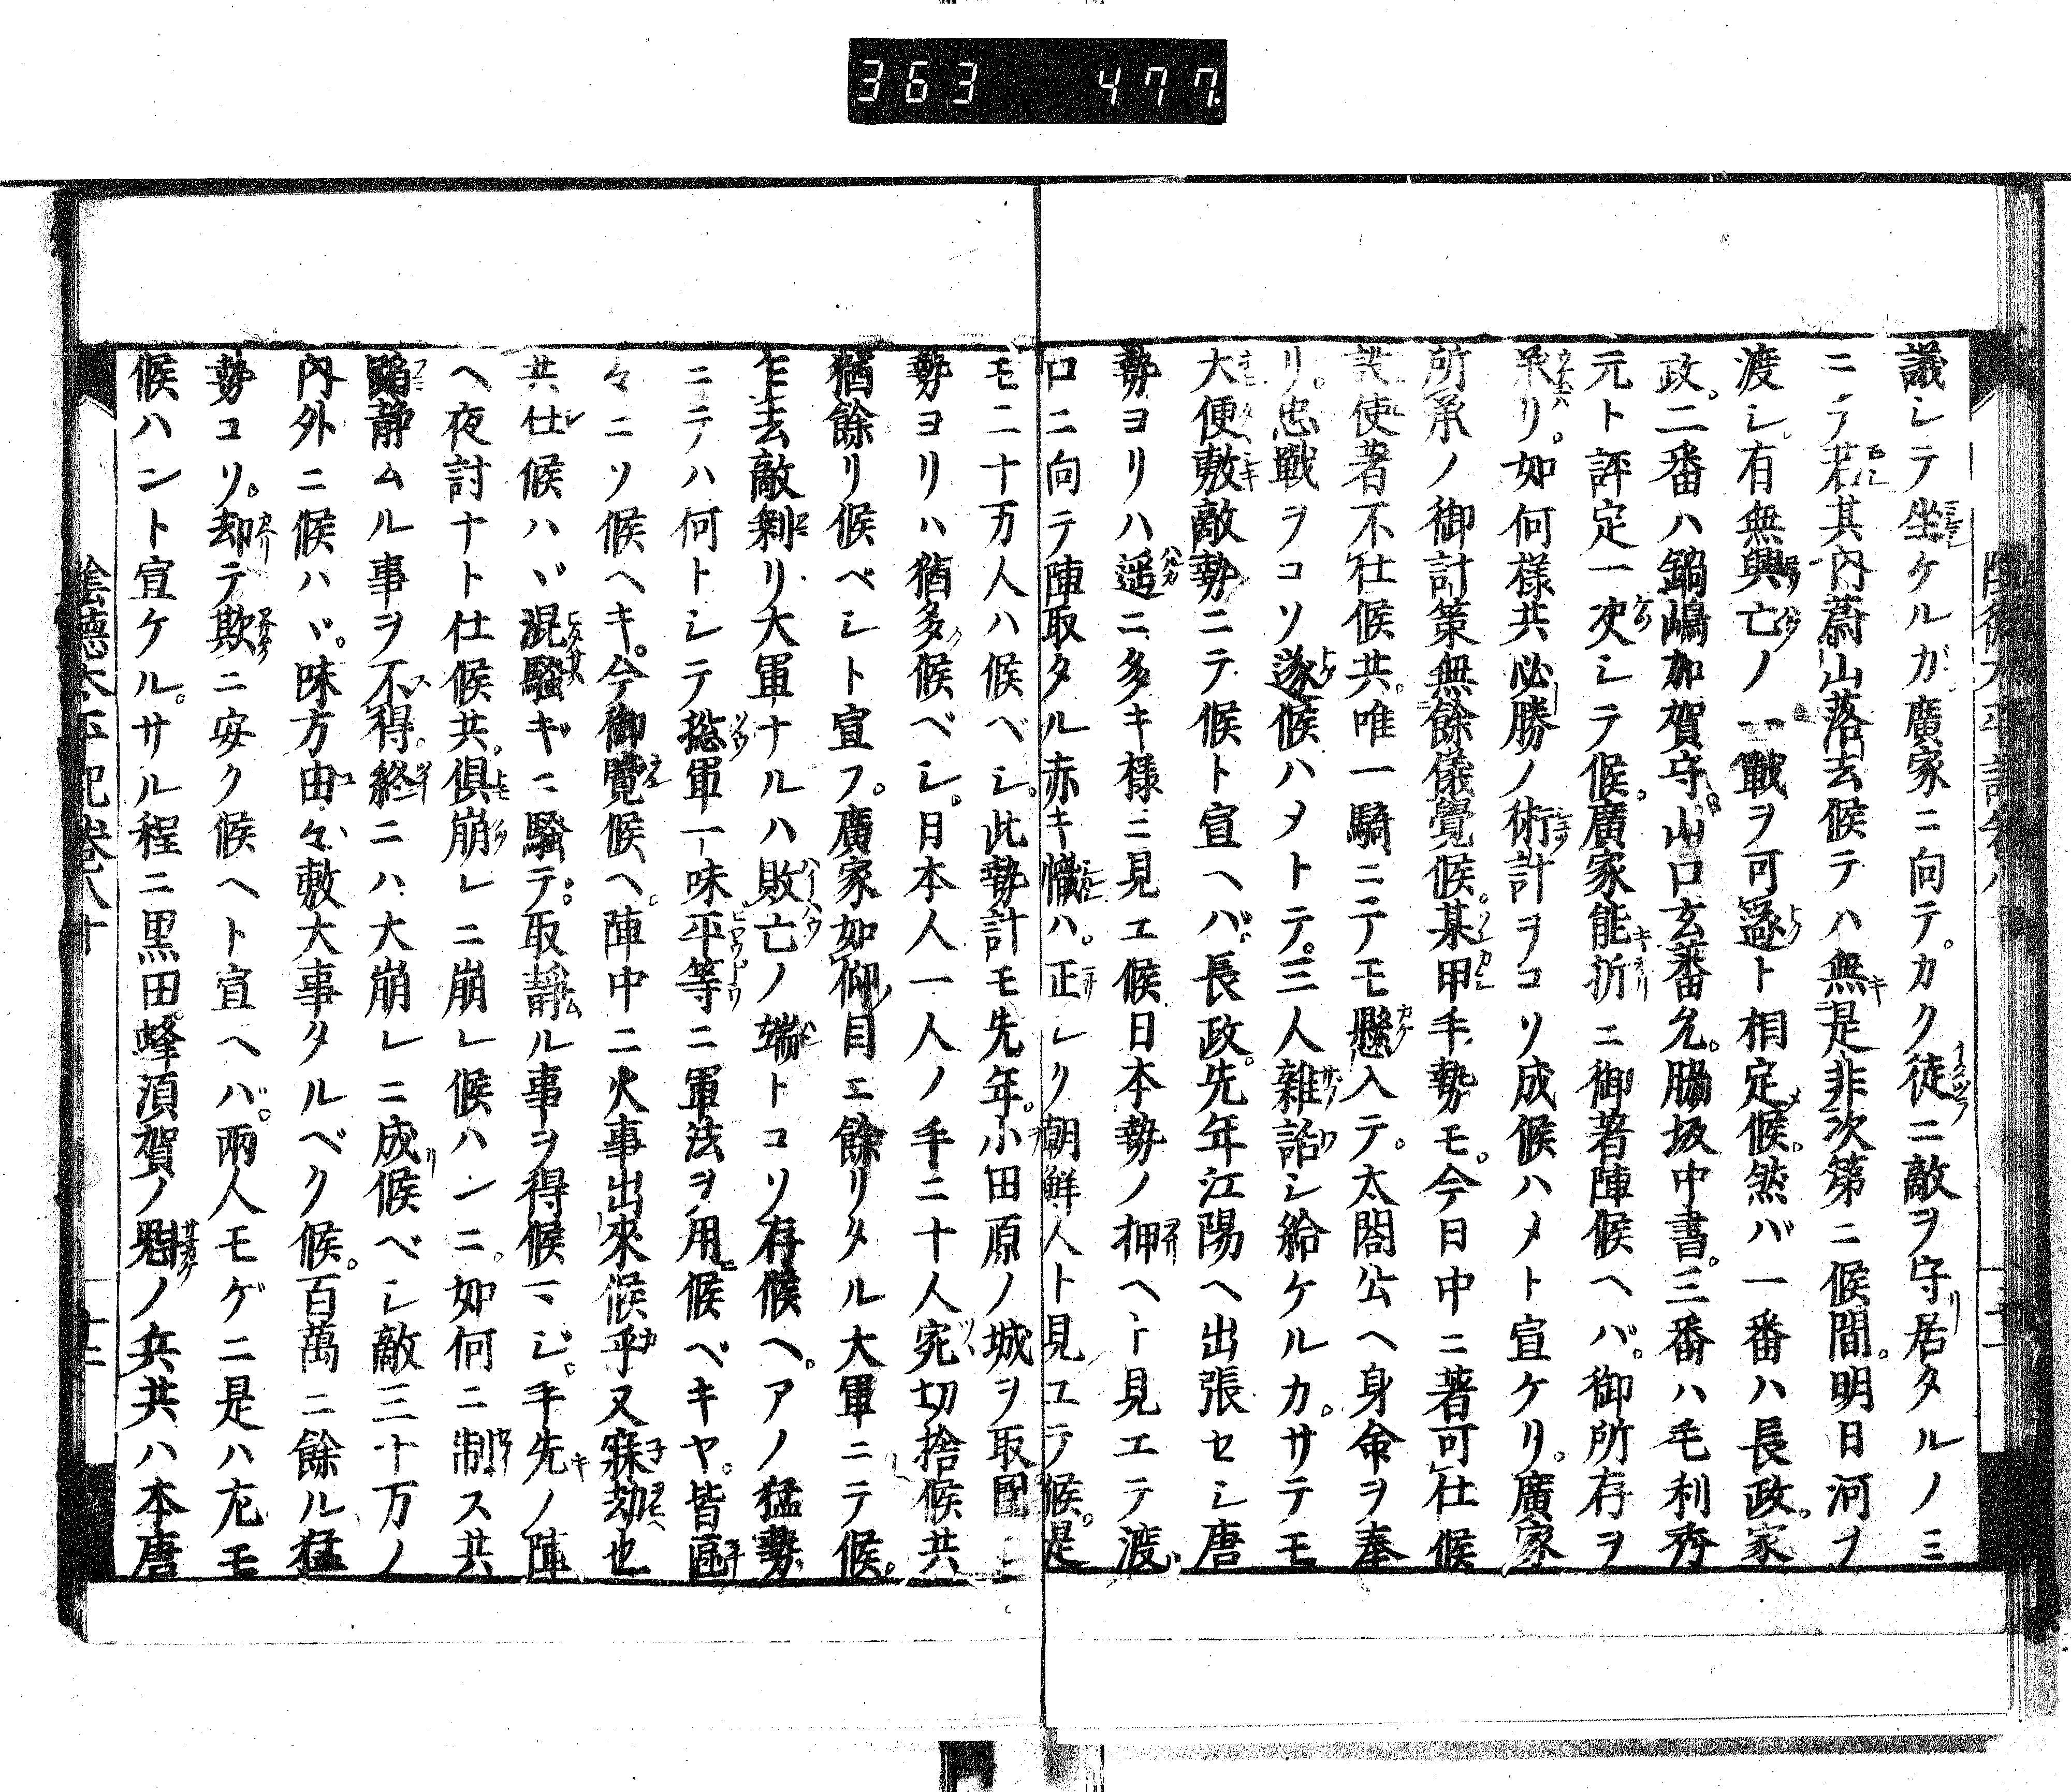 363 477.
議シテ坐ケルガ廣家ニ向テ。カク徒ニ敵ヲ守リ居タルノミ
ニテ若其内蔚山落去候テハ無是非次第ニ候間。明日河ヲ
渡シ。有無興亡ノ一戰ヲ可遂ト相定メ候。然バ一番ハ長政。家
政。二番ハ鍋嶋加賀守。山口玄蕃允。脇坂中書。三番ハ毛利秀
元ト評定一決シテ候。廣家能折ニ御著陣候ヘバ。御所存ヲ
承リ。如何樣共必勝ノ術計ヲコソ成候ハメト宣ケリ。廣家
所承ノ御計策無餘儀覺候。某甲手勢モ。今日中ニ著可仕候
使著不仕候共。唯一騎ニテモ懸入テ。太閤公ヘ身命ヲ奉
リ。忠戰ヲコソ遂候ハメトテ。三人雜話シ給ケルカ。サテモ
大便敷敵勢ニテ候ト宣ヘバ。長政。先年江陽ヘ出張セシ唐
勢ヨリハ遥ニ多キ樣ニ見エ候日本勢ノ押ヘト見エテ渡
口ニ向テ陣取タル赤キ幟ハ。正シク朝鮮人ト見エテ候。是
モ二十万人ハ候ベシ。此勢計モ先年。小田原ノ城ヲ取圍
勢ヨリハ猶多ク候ベシ。日本人一人ノ手ニ十人宛切捨候共
猶餘リ候ベシト宣フ。廣家如仰目ニ餘リタル大軍ニテ候。
乍去敵剰リ大軍ナルハ敗亡ノ端トコソ存候ヘ。アノ猛勢
ニテハ何トシテ惣軍一味平等ニ軍法ヲ用候ベキヤ。皆區
々ニソ候ヘキ。今御覽候ヘ陣中ニ火事出來候乎又寐劫也
共仕候ハヾ混騒ギニ騒テ。取靜ムル事ヲ得候マジ。手先ノ陣
ヘ夜討ナト仕候共。倶崩レニ崩レ候ハンニ。如何ニ制ス共
靜ムル事ヲ不得。終ニハ大崩レニ成候ベシ敵三十万ノ
内外ニ候ハヾ。味方由々敷大事タルベク候。百萬ニ餘ル猛
勢コリ。却テ欺ニ安ク候ヘト宣ヘバ。兩人モゲニ是ハ尤モ
候ハント宣ケル。サル程ニ黒田蜂須賀ノ ノ兵共ハ本唐
陰德太平記卷八十 十二